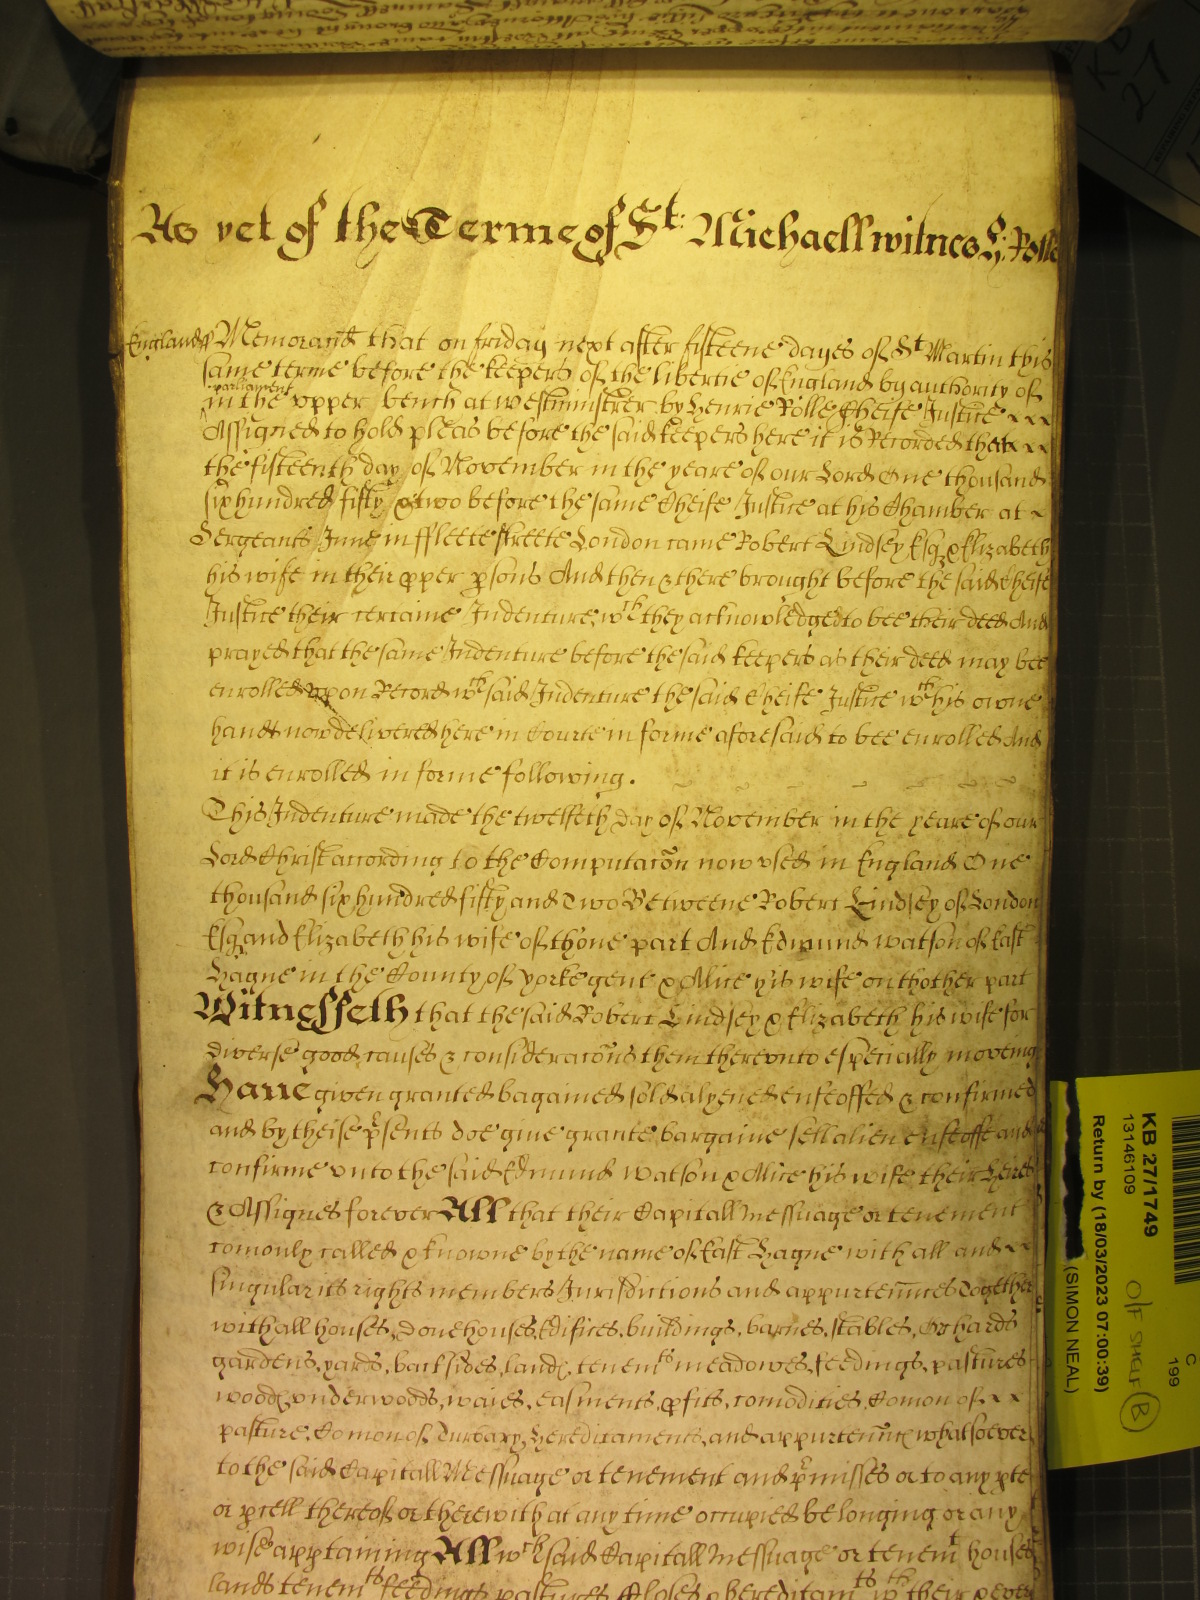 As yet of the Terme of St: Michaell witnes H: Rolle
England ss Memorand that on friday next after fifteene dayes of St Martin this
same terme before the keepers of the libertie of England by authority of
parliament
in the vpper bench at westminster by Henrie Rolle Cheife Justice
Assigned to hold pleas before the said keepers here it is Recorded that
the fifteenth day of November in the yeare of our Lord One thousand
six hundred fifty & two before the same Cheife Justice at his Chamber at
Sergeants Inne in ffleete streete London came Robert Lindsey Esqz & Elizabeth
his wife in their pper psons And then & there brought before the said Cheife
Justice their certaine Indenture wch they acknowledged to bee their deed And
prayed that the same Indenture before the said keepers as their deed may bee
enrolled vpon Record wch said Indenture the said Cheife Justice wth his owne
hand now delivered here in Courte in forme aforesaid to bee enrolled And
it is enrolled in forme following.
This Indenture made the twelfeth day of November in the yeare of our
Lord Christ according to the Computacon now vsed in England One
thousand six hundred fifty and Two Betweene Robert Lindsey of London
Esqz and Elizabeth his wife of thone part And Edmund watson of East
Hague in the County of yorke gent & Alice his wife on thother part
Witnesseth that the said Robert Lindsey & Elizabeth his wife for
diverse good causes & consideracons them therevnto especially moveing
Haue given granted bagained sold alyened enfeoffed & confirmed
and by theise psents doe giue grante bargaine sell alien enfeoffe and
confirme vnto the said Edmund watson & Alice his wife their Heires
& Assignes forever All that their Capitall messuage or tenement
comonly called & knowne by the name of East Hague with all and
singular its rights members Jurisdictions and appurtennces Together
with all houses, dovehouses, Edifices, buildings, barnes, stables, Orchards
gardens, yards, backsides, lands, tenemts meadowes, feedings, pastures
woods, vnderwoods, waies, easments, pfits, comodities, Comon of
pasture, Comon of Turbary, Hereditaments, and appurtennces whatsoever
to the said Capitall Messuage or tenement and pmisses or to any pte
or pcell thereof or therewith at any time occupied belonging or any
wise apptaining All wch said Capitall messuage or tenemt houses
lands tenemts feedings pastures Closes & hereditamts wth their
KB 27
KB 27/1749
13146109
Return by (18/03/2023 07:00:39)
(SIMON NEAL)
C
199
O/F SHELF B